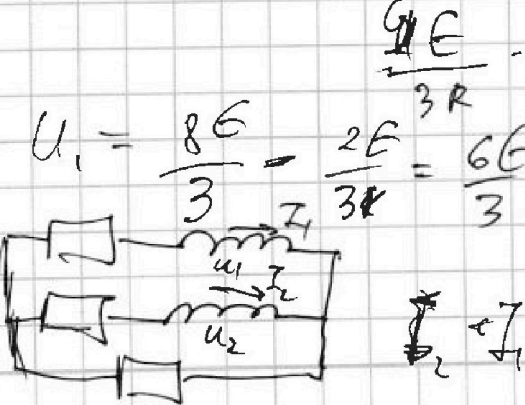 E
3R
U₁ = 8E/3 - 2E/3 = 6E/3
I₁
u₁
I₂
u₂